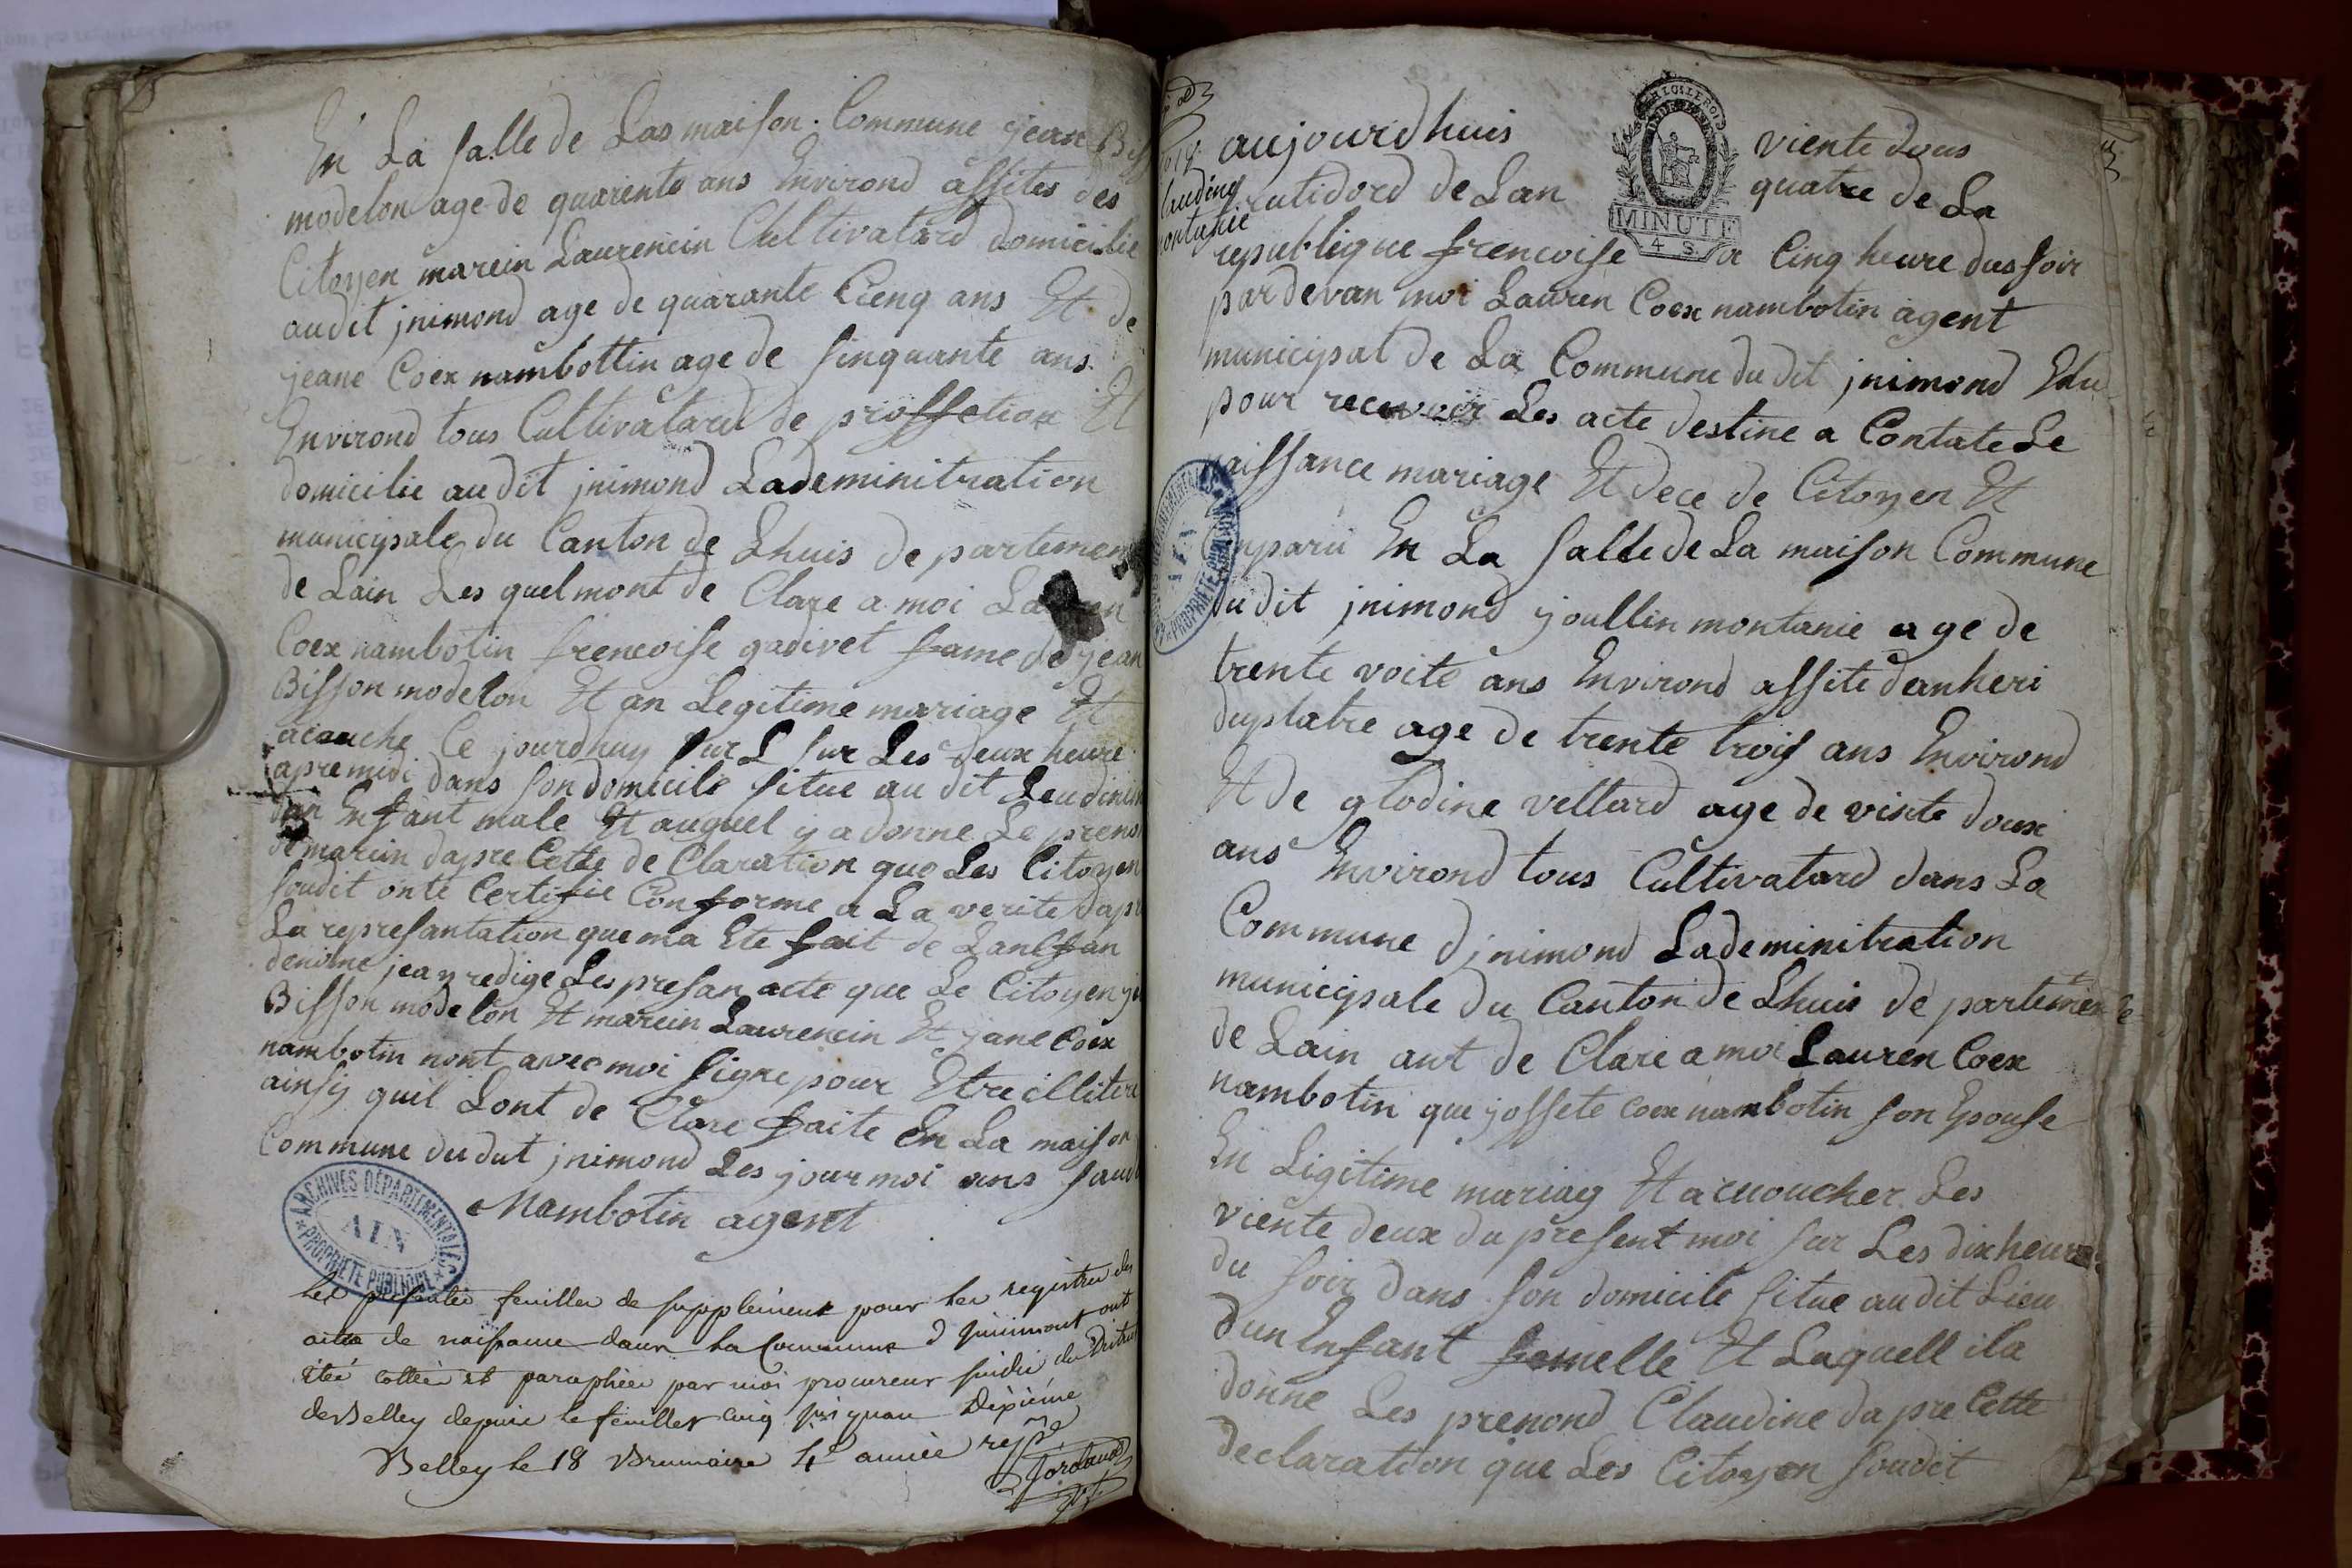 En La salle de Las maison Commune jean Biss
modelon age de quarente ans Environd assites des
Citoyen marcin Laurencin Cultivatard domicilie
audit jnimond age de quarante Cienq ans Et de
jeane Coex nambottin age de sinquante ans
Environd tous Cultivatard de proffetion Et
domicilie audit jnimond Lademinitration
municipale du Canton de Lhuis de partemen
de Lain Les quelmont de Clare a moi Lauren
Coex nambotin frencoise gadivet fame de jean
Bisson modelon Et an Legitime mariage Et
acouche Ce jourdhuy sur L sur Les deux heure
apremidi dans son domicile situe au dit
dun Enfant male Et auquel y a donne Le preno
de marcin dapre Cette de Claration que Les Citoyen
soudit onte Certifie Conforme a La verite dapr
La represantation quema Ete fait de Lanffan
denome jeay redige Les presan acte que Le Citoyen
Bisson modelon Et marcin Laurencin Et jane Coex
nambotin nont avec moi signe pour Etre illitere
ainsy quil Lont de Clare faite En La maison
Commune du dut jnimond Les jour moi ans saud
Nambotin agent
ARCHIVES DÉPARTEMENTALES
AIN
PROPRIÉTÉ PUBLIQUE
Les presentes feuilles de supplement pour les registres des
actes de naissance dans la Commune d Jnimont ont
étée cottées et paraphées par moi procureur sindic du District
de Belley depuis le feuillet cinq jusquau dixième
Belley le 18 Brumaire 4e année repne
aujourdhuis
viente dous
frutidord de Lan
quatre de La
LA LOI LE ROI
MINUTE
4 S
Claudine
montanié
republique frencoise
a Cinq heure dus soir
pardevan moi Lauren Coex nambotin agent
municipal de La Commune du dit jnimond Elu
pour recevoir Les acte destine a Contate Le
naissance mariage Et dece de Citoyen Et
Conparu En La salle de La maison Commune
dudit jnimond joullin montanie age de
trente voite ans Environd assite deanheri
duplatre age de trente trois ans Environd
Et de glodine vettard age de vinte doux
ans Environd tous Cultivatard dans La
Commune djnimond Lademinitration
municipale du Canton de Lhuis de partement
de Lain aut de Clare a moi Lauren Coex
nambotin que jossete coex nambotin son Epouse
En Ligitime mariag Et acuoucher Les
viente deux du present moi sur Les dix heure
du soir dans son domicile situe audit Lieu
dun Enfant femelle Et Laquell ila
donne Les prenond Claudine dapre Cette
declaration que Les Citoyen soudit